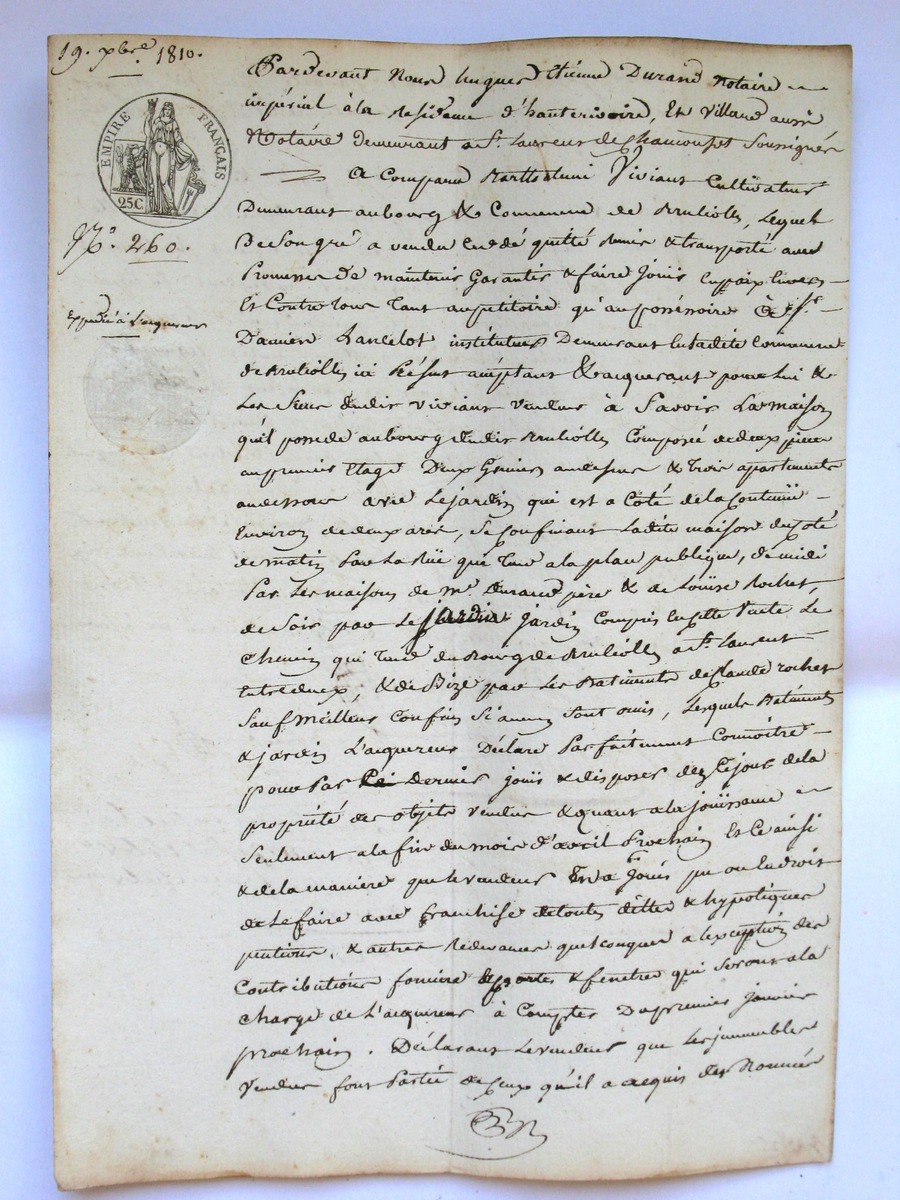 19. xbre 1810.
EMPIRE FRANÇAIS
25C
N.o 260.
Expédié à l'acquereur
Pardevant Nous hugues Etienne Durand Notaire
impérial à la Residence d'hauterivoire, Et Villand aussi
Notaire demeurant a St. Laurent de Chamousset Soussignés
a Comparu Barthelemi Viviant Cultivateur
Demeurant au bourg & Commune de Brulioll, Lequel
De Son gré a vendu cedé quitté remis & transporté avec
Promesse de maintenir Garantir & faire Jouir En paix Envers
Et Contre tous tant au petitoire qu'au possessoire à Sr.
Damien Lancelot instituteur Demeurant En ladite Commune
de Brulioll ici Présent acceptant & acquerant pour Lui &
Les Siens dudit viviant vendeur à Savoir La maison
qu'il possede au bourg dudit Brulioll Composée de deux pieces
au premier Etage Deux Greniers au dessus & trois apartements
au dessous avec Le jardin qui est a Coté de la Contenüe
Environ de deux ares, Se Confinant Ladite maison du coté
de matin par La Rüe qui tend a la place publique, de midi
Par Les maisons de mr. durand père & de Loüise Rochet,
de Soir par Le jardin Compris En cette Vente Le
Chemin qui tend du Bourg de Brulioll a St. Laurent
Entre deux, & de Bize par Les Batiments de Claude rochet
Sauf Meilleur Confins Si aucuns Sont omis, Lesquels Batiments
& jardin L'acquereur Déclare Parfaitement Connoitre
pour Par ce dernier jouir & disposer dez Ce jour de la
propriété des objets vendus & quant a la joüissance
Seulement a la fin du mois d'avril Prochain Et ce ainsi
& de la maniere que le vendeur En a Jouis pu ou Eu droit
de Le faire avec franchise de toutes dettes & hypotéques
pentions, & autres Redevances quelconques a l'exception des
Contributions fonciere & portes & fenetres qui Seront a la
charge de L'acquereur à Compter Du premier Janvier
prochain. Déclarant Le vendeur que Les immeubles
Vendus font Partie de Ceux qu'il a acquis des Nommés